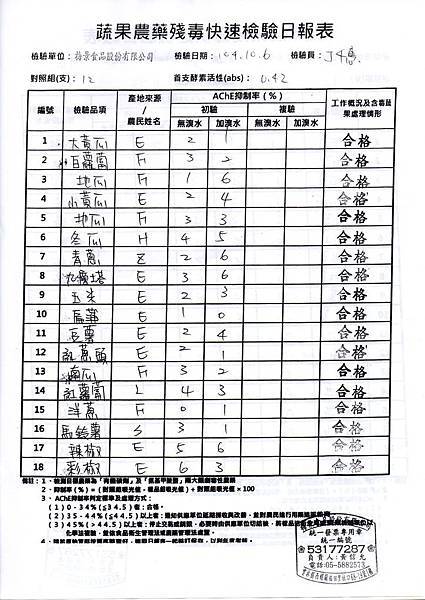 蔬果農藥殘毒快速檢驗日報表
檢驗單位： 食品股份有限公司 檢驗日期：104.10.6 檢驗員：
對照組(支)：12 首支酵素活性(abs)：0.42
編號 檢驗品項 產地來源/農民姓名 AChE抑制率(%) 工作概況及含毒蔬果處理情形
初驗 複驗
無溴水 加溴水 無溴水 加溴水
1 大黃瓜 E 2 1 合格
2 白蘿蔔 H 3 2 合格
3 地瓜 H 1 6 合格
4 小黃瓜 E 2 4 合格
5 地瓜 H 3 3 合格
6 冬瓜 H 4 5 合格
7 青蔥 Z 2 6 合格
8 九層塔 E 3 6 合格
9 玉米 E 2 3 合格
10 E 1 0 合格
11 豆薯 E 2 4 合格
12 紅蔥頭 E 2 1 合格
13 南瓜 H 3 2 合格
14 紅蘿蔔 L 4 3 合格
15 洋蔥 H 0 1 合格
16 馬鈴薯 S 3 1 合格
17 辣椒 E 5 6 合格
18 彩椒 E 6 3 合格
備註：1．檢測目標農藥為「有機磷劑」及「氨基甲酸鹽」兩大類劇毒性農藥
2．抑制率(%)=(對照組吸光值－樣品組吸光值)÷對照組吸光值×100
3．AChE抑制率判定標準及處理方式：
(1) 0 - 34% (≤34.5)者：合格。
(2) 35 - 44% (≤44.5)以上者：
(3) 45% (>44.5)以上者：停止交易或銷毀，
統一發票專用章
統一編號
53177287
負責人：黃信允
電話:05-5882573